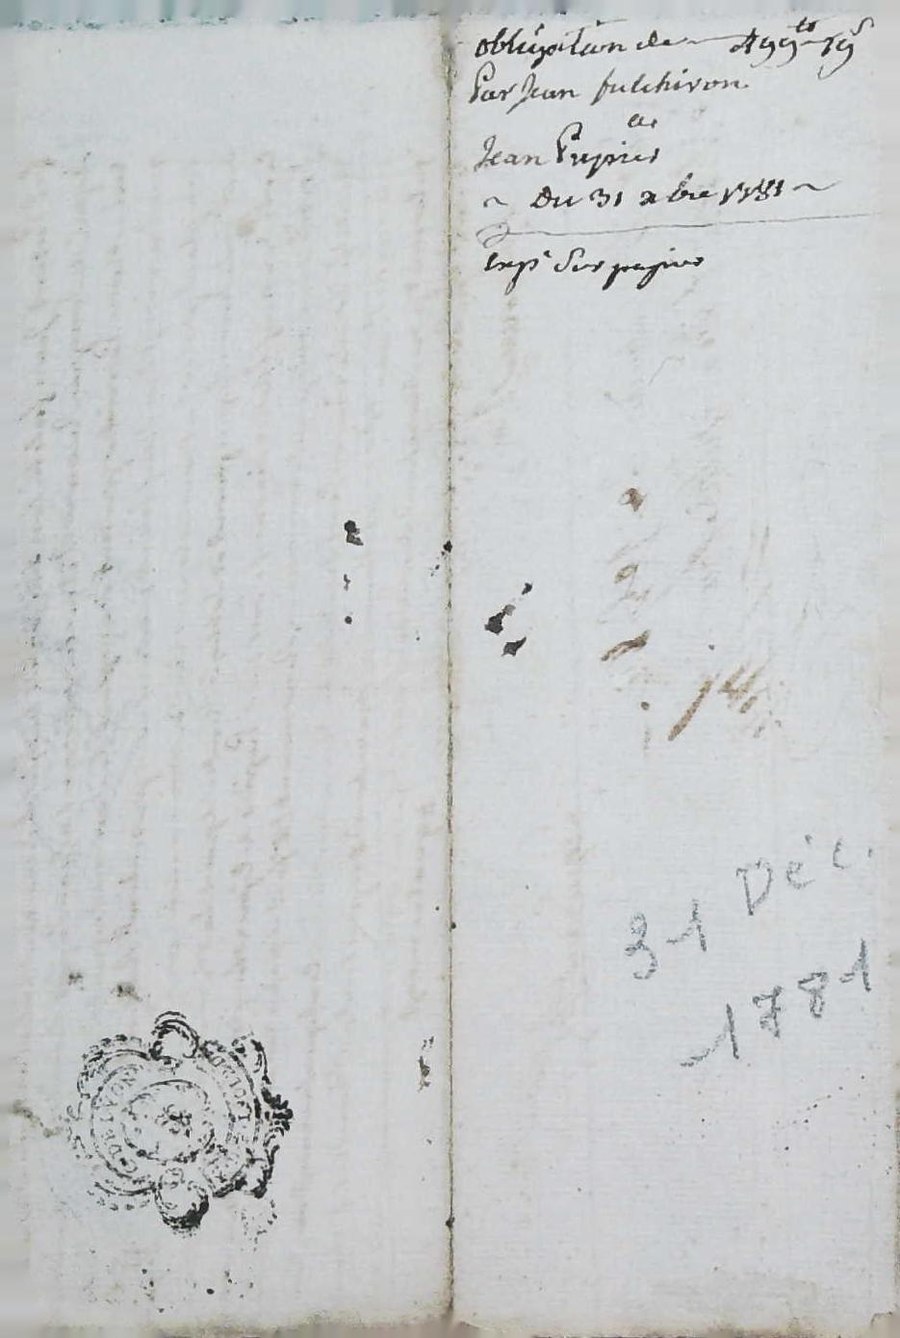 obligation de 499ᵗᵗ 19ˢ
Par Jean fulchiron
a
Jean Pupier
~ du 31 xbre 1781 ~
exp. Sur papier
14
31 Déc.
1781